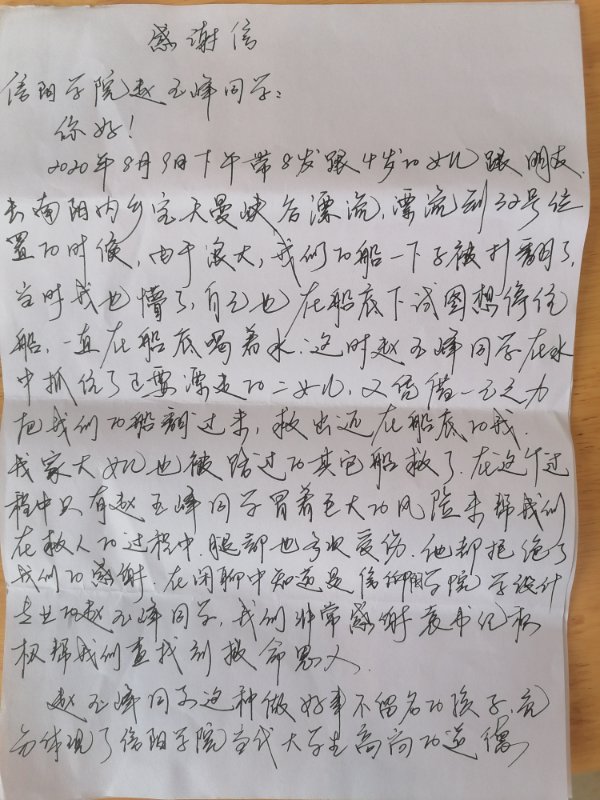 感谢信
信阳学院赵玉峰同学：
你好！
2020年8月9日下午带8岁跟4岁的女儿跟朋友
去南阳内乡宝天曼峡谷漂流，漂流到32号位
置的时候，由于浪大，我们的船一下子被打翻了，
当时我也懵了，自己也在船底下试图想停住
船，一直在船底喝着水。这时赵玉峰同学在水
中抓住了已要漂走的二女儿，又凭借一己之力
把我们的船翻过来，救出还在船底的我。
我家大女儿也被路过的其它船救了。在这个过
程中只有赵玉峰同学冒着巨大的风险来帮我们
在救人的过程中，腿部也多次受伤。他却拒绝了
我们的感谢。在闲聊中知道是信阳学院 学设计
专业的赵玉峰同学，我们非常感谢袁书记积
极帮我们查找到救命恩人。
赵玉峰同学这种做好事不留名的孩子，充
分体现了信阳学院当代大学生高尚的道德